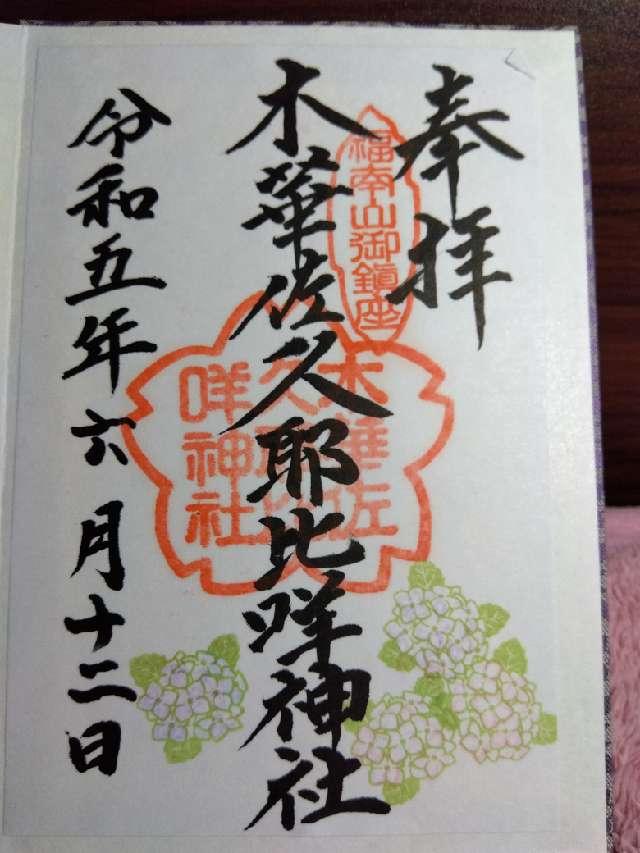 奉拝
福南山御鎮座
木華佐久耶比咩神社
木華佐
久耶比
咩神社
令和五年六月十二日